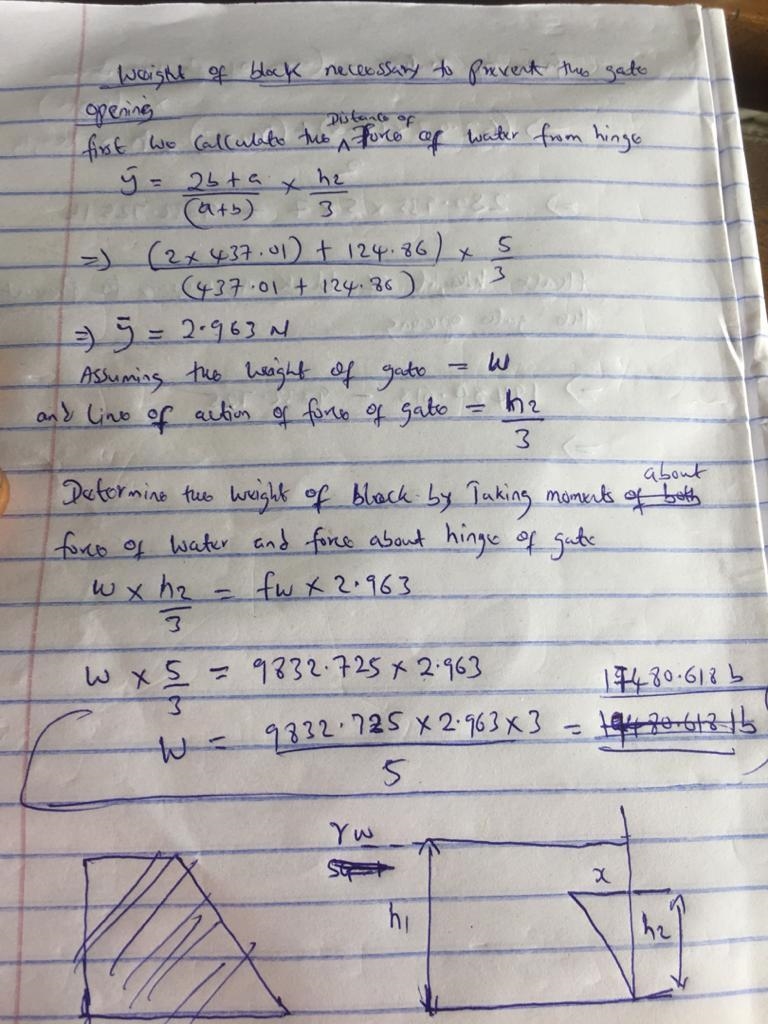 Weight of block necessary to prevent the gate
opening
first we calculate the Distance of Force of water from hinge
ȳ = 2b + a / (a+b) × h2 / 3
=) (2 × 437.01) + 124.86) / (437.01 + 124.86) × 5 / 3
=) ȳ = 2.963 M
Assuming the weight of gate = W
and line of action of force of gate = h2 / 3
Determine the weight of block by Taking moments about
force of water and force about hinge of gate
W × h2 / 3 = fw × 2.963
W × 5 / 3 = 9832.725 × 2.963
17480.618 lb
W = 9832.725 × 2.963 × 3 / 5 =
γw
x
h1
h2